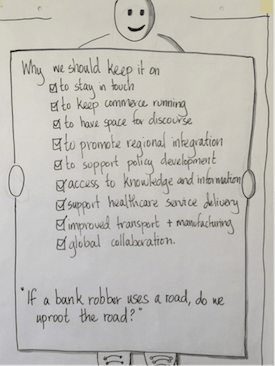 Why we should keep it on
☑ to stay in touch
☑ to keep commerce running
☑ to have space for discourse
☑ to promote regional integration
☑ to support policy development
☑ access to knowledge and information
☑ support healthcare service delivery
☑ improved transport + manufacturing
☑ global collaboration.
"If a bank robber uses a road, do we
uproot the road?"